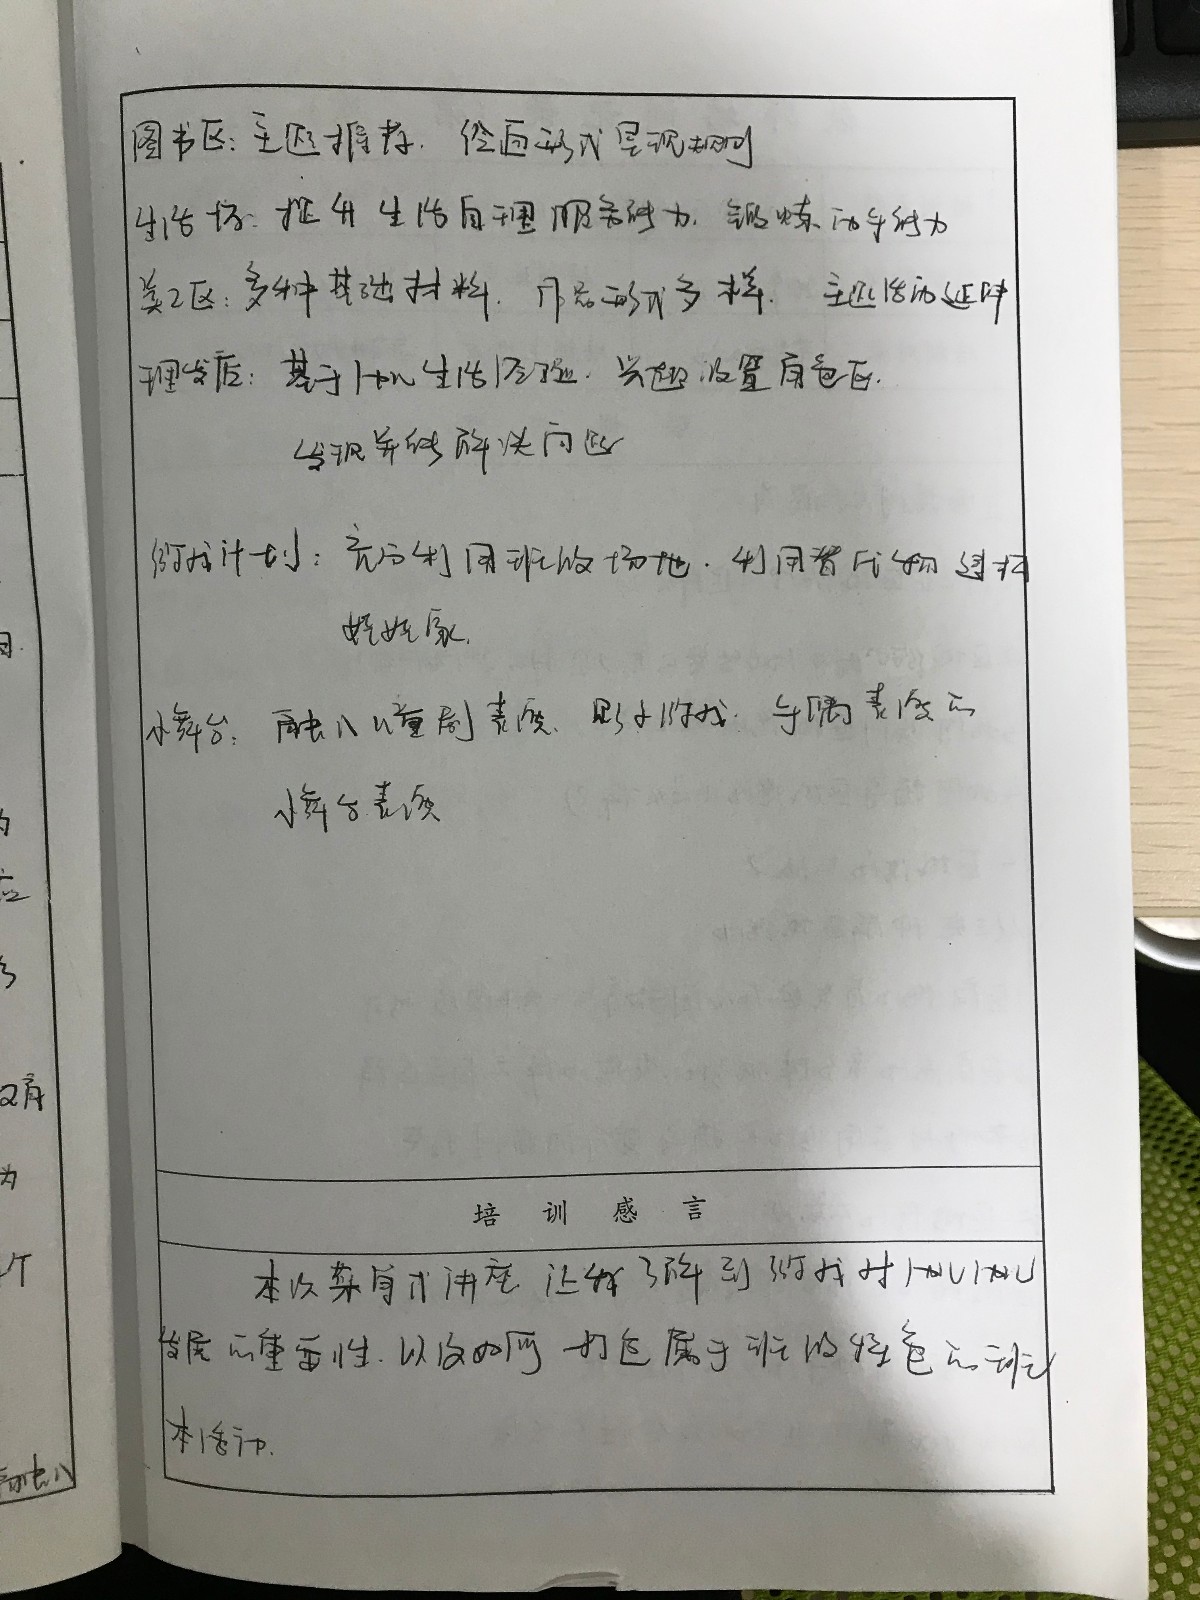 图书区：主题推荐．绘画形式呈现规则
生活场：提升生活自理服务能力．锻炼动手能力
美工区：多种基础材料．作品形式多样．主题活动延伸
理发店：基于幼儿生活经验．兴趣设置角色区．
发现并能解决问题
游戏计划：充分利用班级场地．利用替代物
娃娃家．
小舞台：融入儿童剧表演．影子游戏．手偶表演的
小舞台表演
培训感言
本次菜单式讲座让我了解到游戏对幼儿
发展的重要性．以及如何打造属于班级特色的班
本活动．